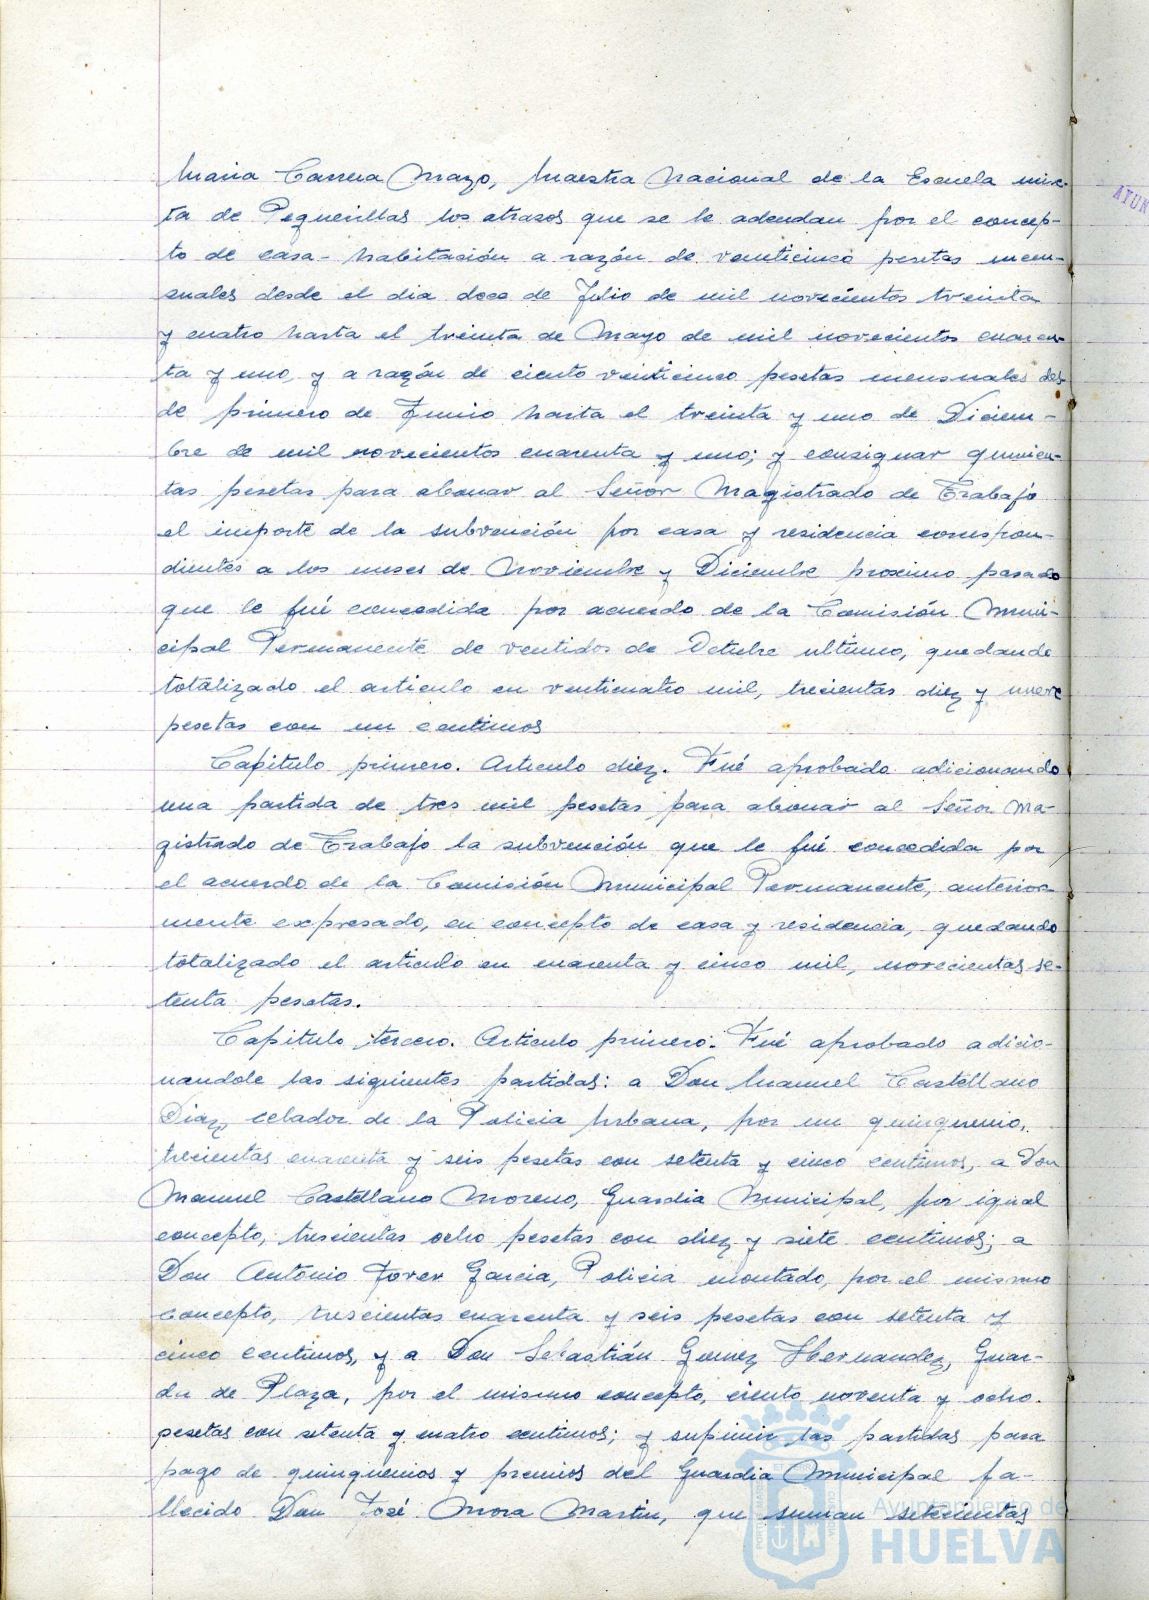 Maria Carrera Mazo, Maestra Nacional de la Escuela mix-
ta de Peguerillas los atrasos que se le adeudan por el concep-
to de casa-habitación a razón de veinticinco pesetas men-
suales desde el dia doce de Julio de mil novecientos treinta
y cuatro hasta el treinta de Mayo de mil novecientos cuaren-
ta y uno, y a razón de ciento veinticinco pesetas mensuales des-
de primero de Junio hasta el treinta y uno de Diciem-
bre de mil novecientos cuarenta y uno; y consignar quinien-
tas pesetas para abonar al Señor Magistrado de Trabajo
el importe de la subvención por casa y residencia correspon-
dientes a los meses de Noviembre y Diciembre proximo pasado
que le fué concedida por acuerdo de la Comisión Muni-
cipal Permanente de ventidos de Octubre ultimo, quedando
totalizado el articulo en venticuatro mil, trecientas diez y nueve
pesetas con un centimos
Capitulo primero. Articulo diez. Fué aprobado adicionando
una partida de tres mil pesetas para abonar al Señor Ma-
gistrado de Trabajo la subvención que le fué concedida por
el acuerdo de la Comisión Municipal Permanente, anterior-
mente expresado, en concepto de casa y residencia, quedando
totalizado el articulo en cuarenta y cinco mil, novecientas se-
tenta pesetas.
Capitulo tercero. Articulo primero: Fué aprobado adicio-
nandole las siguientes partidas: a Don Manuel Castellano
Diaz, celador de la Policia Urbana, por un quinquenio,
trecientas cuarenta y seis pesetas con setenta y cinco centimos, a Don
Manuel Castellano Moreno, Guardia Municipal, por igual
concepto, trescientas ocho pesetas con diez y siete centimos; a
Don Antonio Jover Garcia, Policia montado, por el mismo
concepto, trescientas cuarenta y seis pesetas con setenta y
cinco centimos, y a Don Sebastián Gomez Hernandez, Guar-
da de Plaza, por el mismo concepto, ciento noventa y ocho
pesetas con setenta y cuatro centimos; y supimir las partidas para
pago de quinquenios y premios del Guardia Municipal fa-
llecido Don José Mora Martin, que suman setecientas
AYUN
Ayuntamiento de
HUELVA